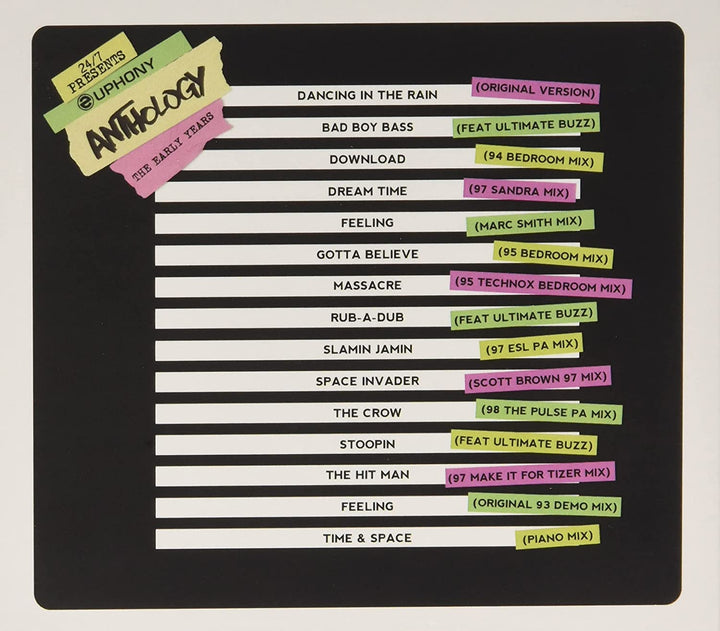 24/7
PRESENTS
EUPHONY
ANTHOLOGY
THE EARLY YEARS
DANCING IN THE RAIN (ORIGINAL VERSION)
BAD BOY BASS (FEAT ULTIMATE BUZZ)
DOWNLOAD (94 BEDROOM MIX)
DREAM TIME (97 SANDRA MIX)
FEELING (MARC SMITH MIX)
GOTTA BELIEVE (95 BEDROOM MIX)
MASSACRE (95 TECHNOX BEDROOM MIX)
RUB-A-DUB (FEAT ULTIMATE BUZZ)
SLAMIN JAMIN (97 ESL PA MIX)
SPACE INVADER (SCOTT BROWN 97 MIX)
THE CROW (98 THE PULSE PA MIX)
STOOPIN (FEAT ULTIMATE BUZZ)
THE HIT MAN (97 MAKE IT FOR TIZER MIX)
FEELING (ORIGINAL 93 DEMO MIX)
TIME & SPACE (PIANO MIX)